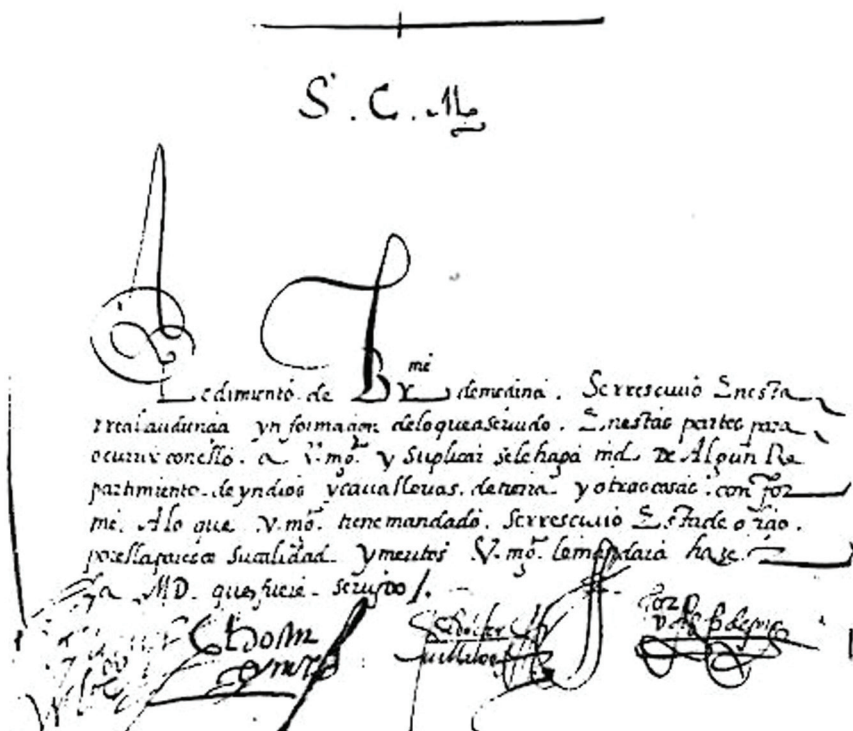 S. C. M
Pedimiento de Bme de medina. Se rrescivio En esta
rreal audiencia ynformacion de lo que a servido. En estas partes para
ocurrir con ello. a V. mg. y suplicar se le haga md De Algun Re
partimiento de yndios y cavallerias de tierra y otras cosas. con for
me. A lo que V. mg. tiene mandado. Se rrescivio Esta de oficio.
por ella parece su calidad y meritos V. mg. le mandara hazer
la MD. que fuere servido
El Doctor